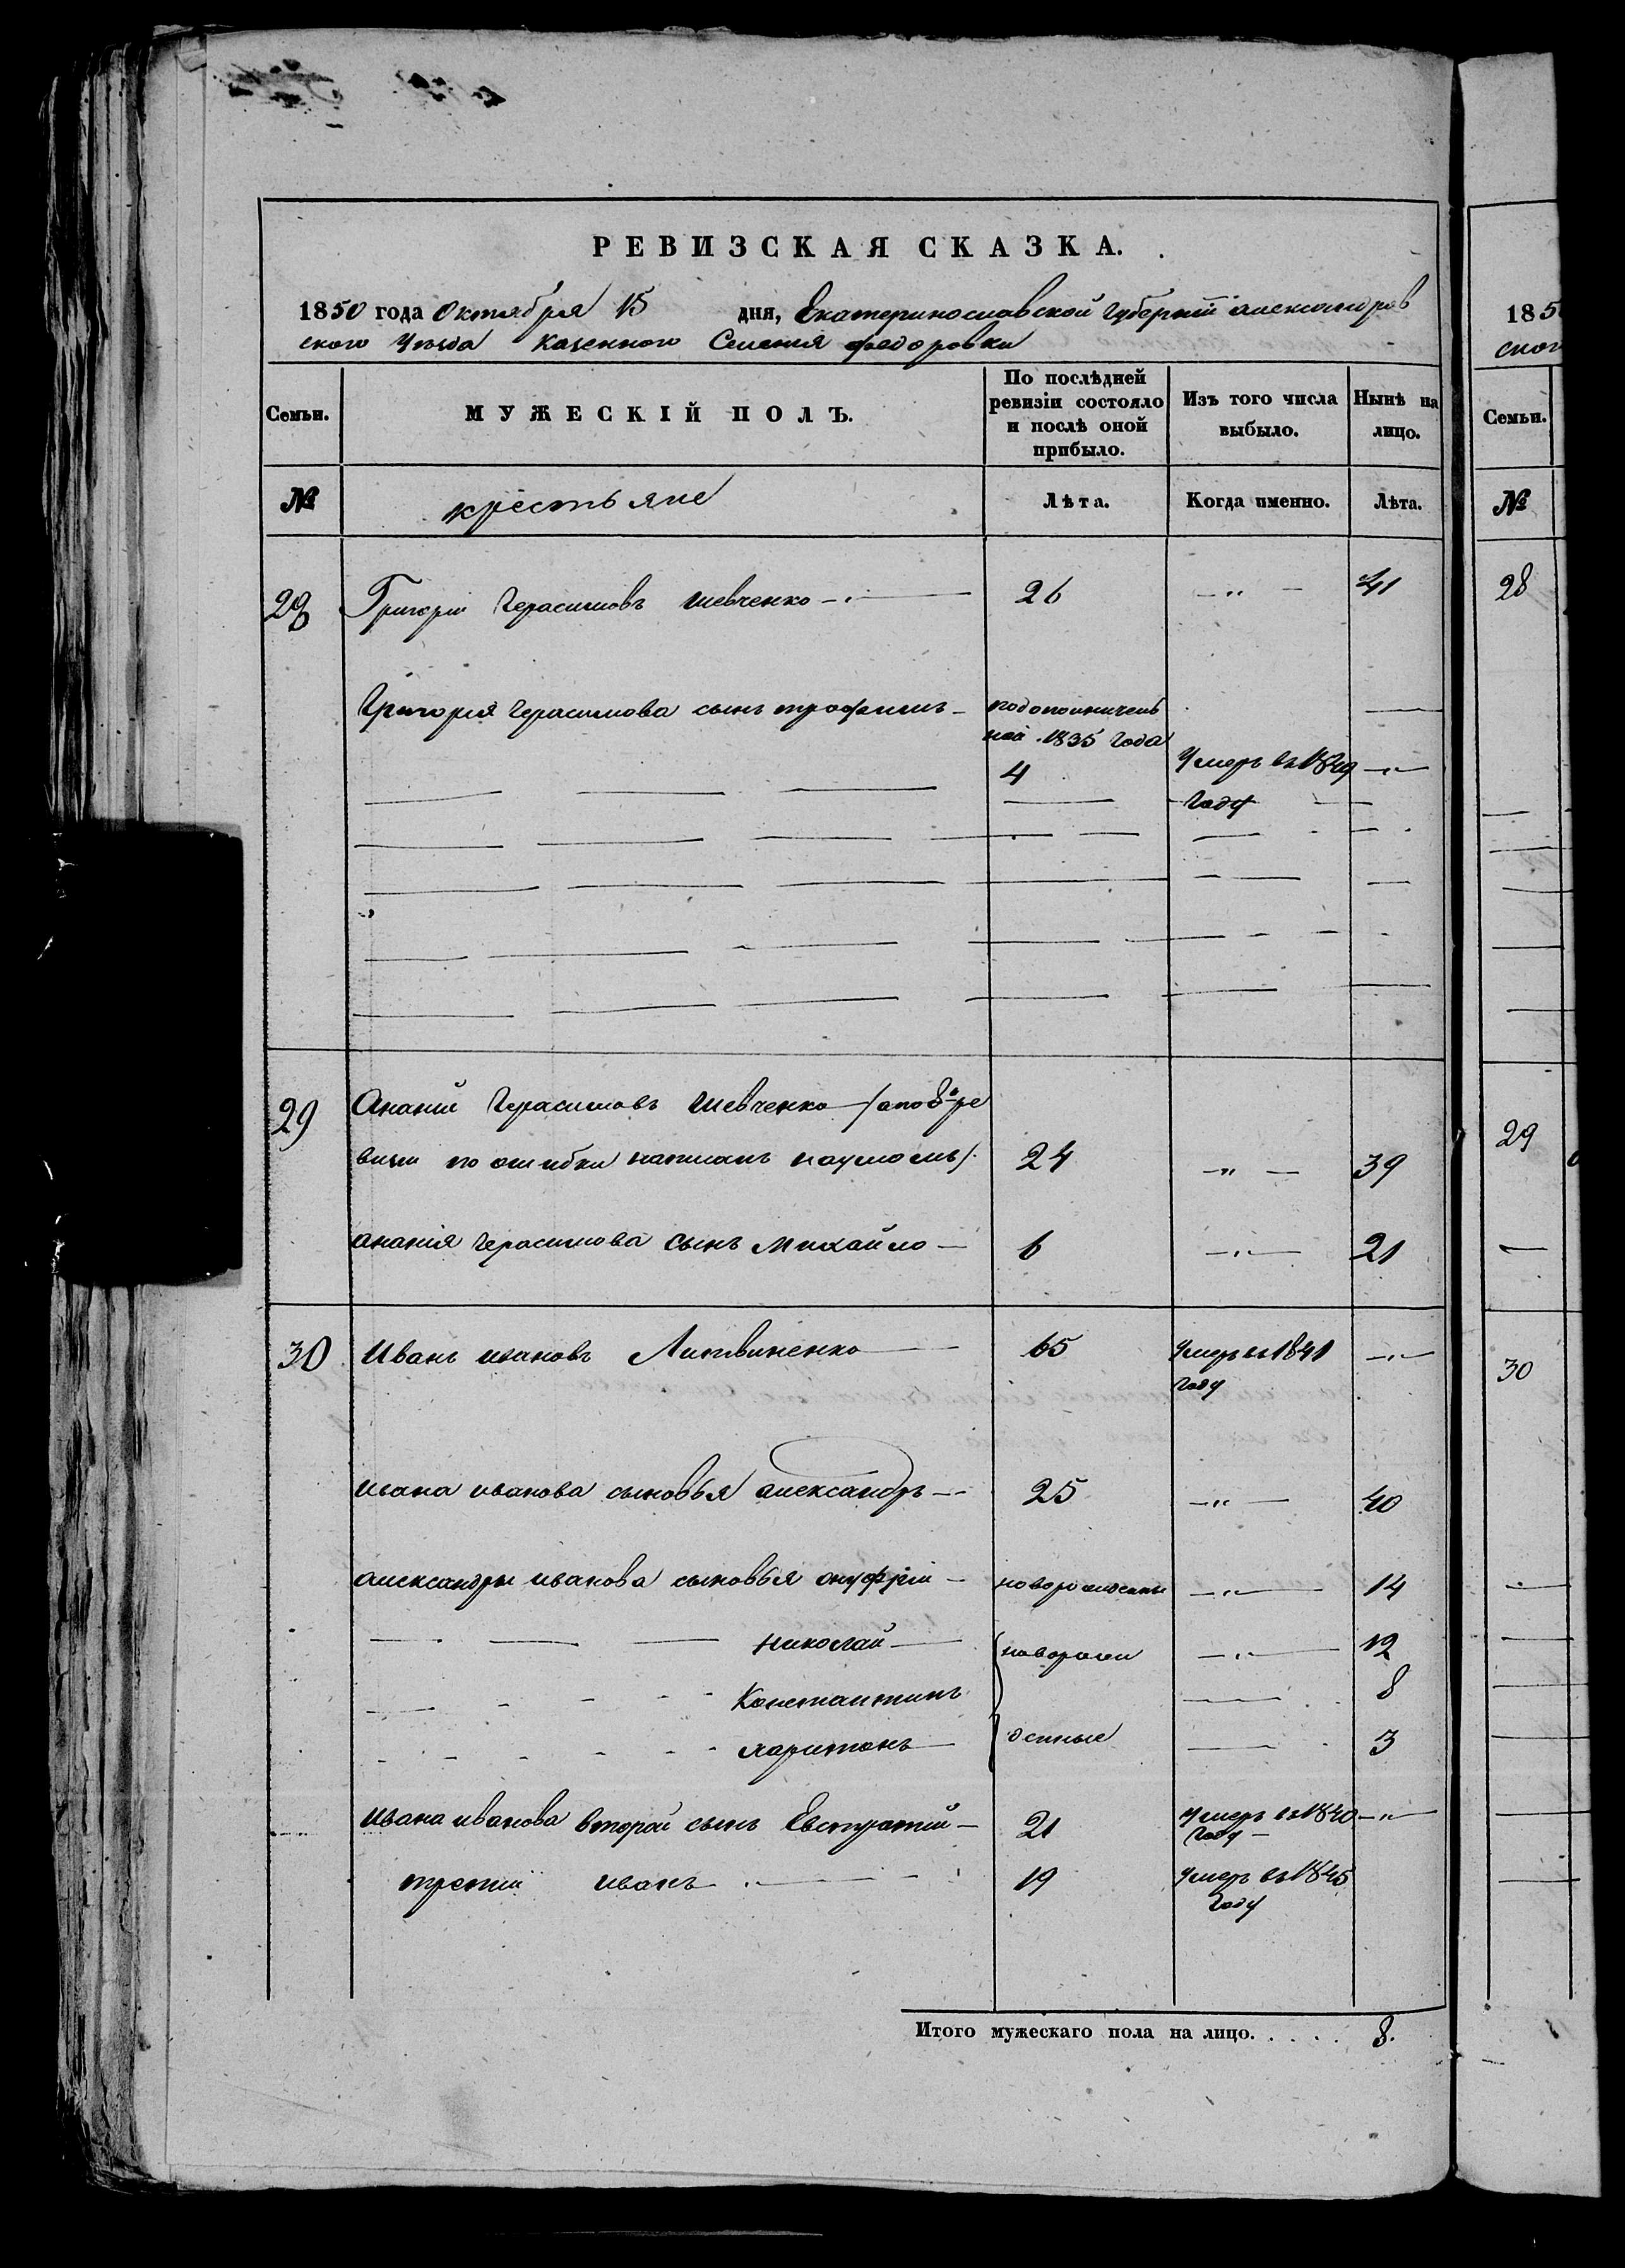 РЕВИЗСКАЯ СКАЗКА.
1850 года Октября 15 дня, Екатеринославской Губернїи александров
ского Уѣзда Казенного Селенія федоровки
Семьи. МУЖЕСКІЙ ПОЛЪ. По послѣдней ревизіи состояло и послѣ оной прибыло. Изъ того числа выбыло. Нынѣ на лицо.
№ крестьяне Лѣта. Когда именно. Лѣта.
28 Григорій Герасимовъ Шевченко 26 — „ — 41
Григорія Герасимова сынъ трофимъ подополнитель
ной 1835 года
4 Умеръ въ 1849 — „ —
году
29 Ананій Герасимовъ Шевченко /а по 8й ре
визіи по ошибки написанъ наумомъ/. 24 — „ — 39
анания Герасимова Сынъ Михайло 6 — „ — 21
30 Иванъ ивановъ Литвиненко 65 Умеръ въ 1841 — „ —
году
ивана иванова сыновья александръ 25 — „ — 40
александры иванова сыновья онуфрій новорожденные — „ — 14
николай новорож — „ — 12
Константинъ 8
харитонъ денные 3
ивана иванова второй сынъ Евстратій 21 Умеръ въ 1840 — „
году
третій иванъ 19 Умеръ въ 1845
году
Итого мужескаго пола на лицо. . . . . 8.
185
ског
Семьи.
№
28
29
30